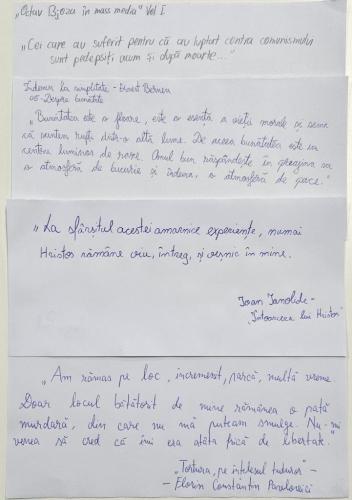 „Octav Bjoza în mass media" Vol I
„Cei care au suferit pentru că au luptat contra comunismului
sunt pedepsiți acum și după moarte..."
Îndemn la simplitate - Ernest Bernea
05-Despre bunătate
„Bunătatea este o floare, este o esență a vieții morale și semn
că suntem dintr-o altă lume. De aceea bunătatea este un
centru luminos de raze. Omul bun răspândește în preajma sa
o atmosferă de bucurie și îndemn, o atmosferă de pace."
„La sfârșitul acestei amarnice experiențe, numai
Hristos rămâne viu, întreg, și veșnic în mine.
Ioan Ianolide -
„Întoarcerea lui Hristos"
„Am rămas pe loc, încremenit, parcă, multă vreme.
Doar locul bătătorit de mine rămânea o pată
murdară, din care nu mă puteam smulge. Nu-mi
venea să cred că îmi era atâta frică de libertate."
„Tortura, pe înțelesul tuturor" -
- Florin Constantin Pavlovici